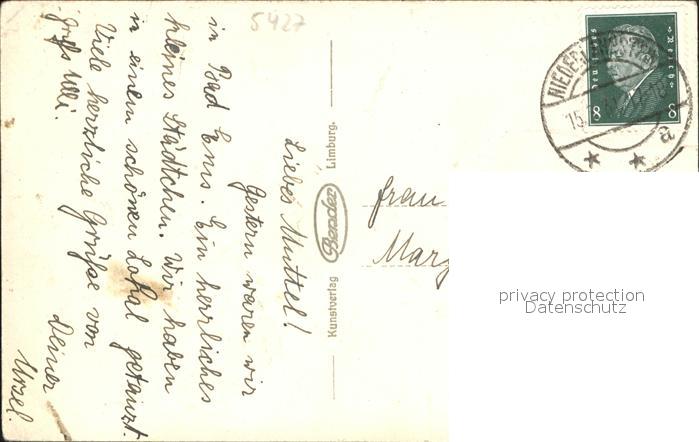 5427
Liebes Muttel!
Gestern waren wir
in Bad Ems. Ein herrliches
kleines Städtchen. Wir haben
in einem schönen Lokal getanzt.
Viele herzliche Grüße von
Deiner
Ursel.
Kunstverlag Bender Limburg.
Frau
Marg
Deutsches Reich
8 8
15.
a
privacy protection
Datenschutz